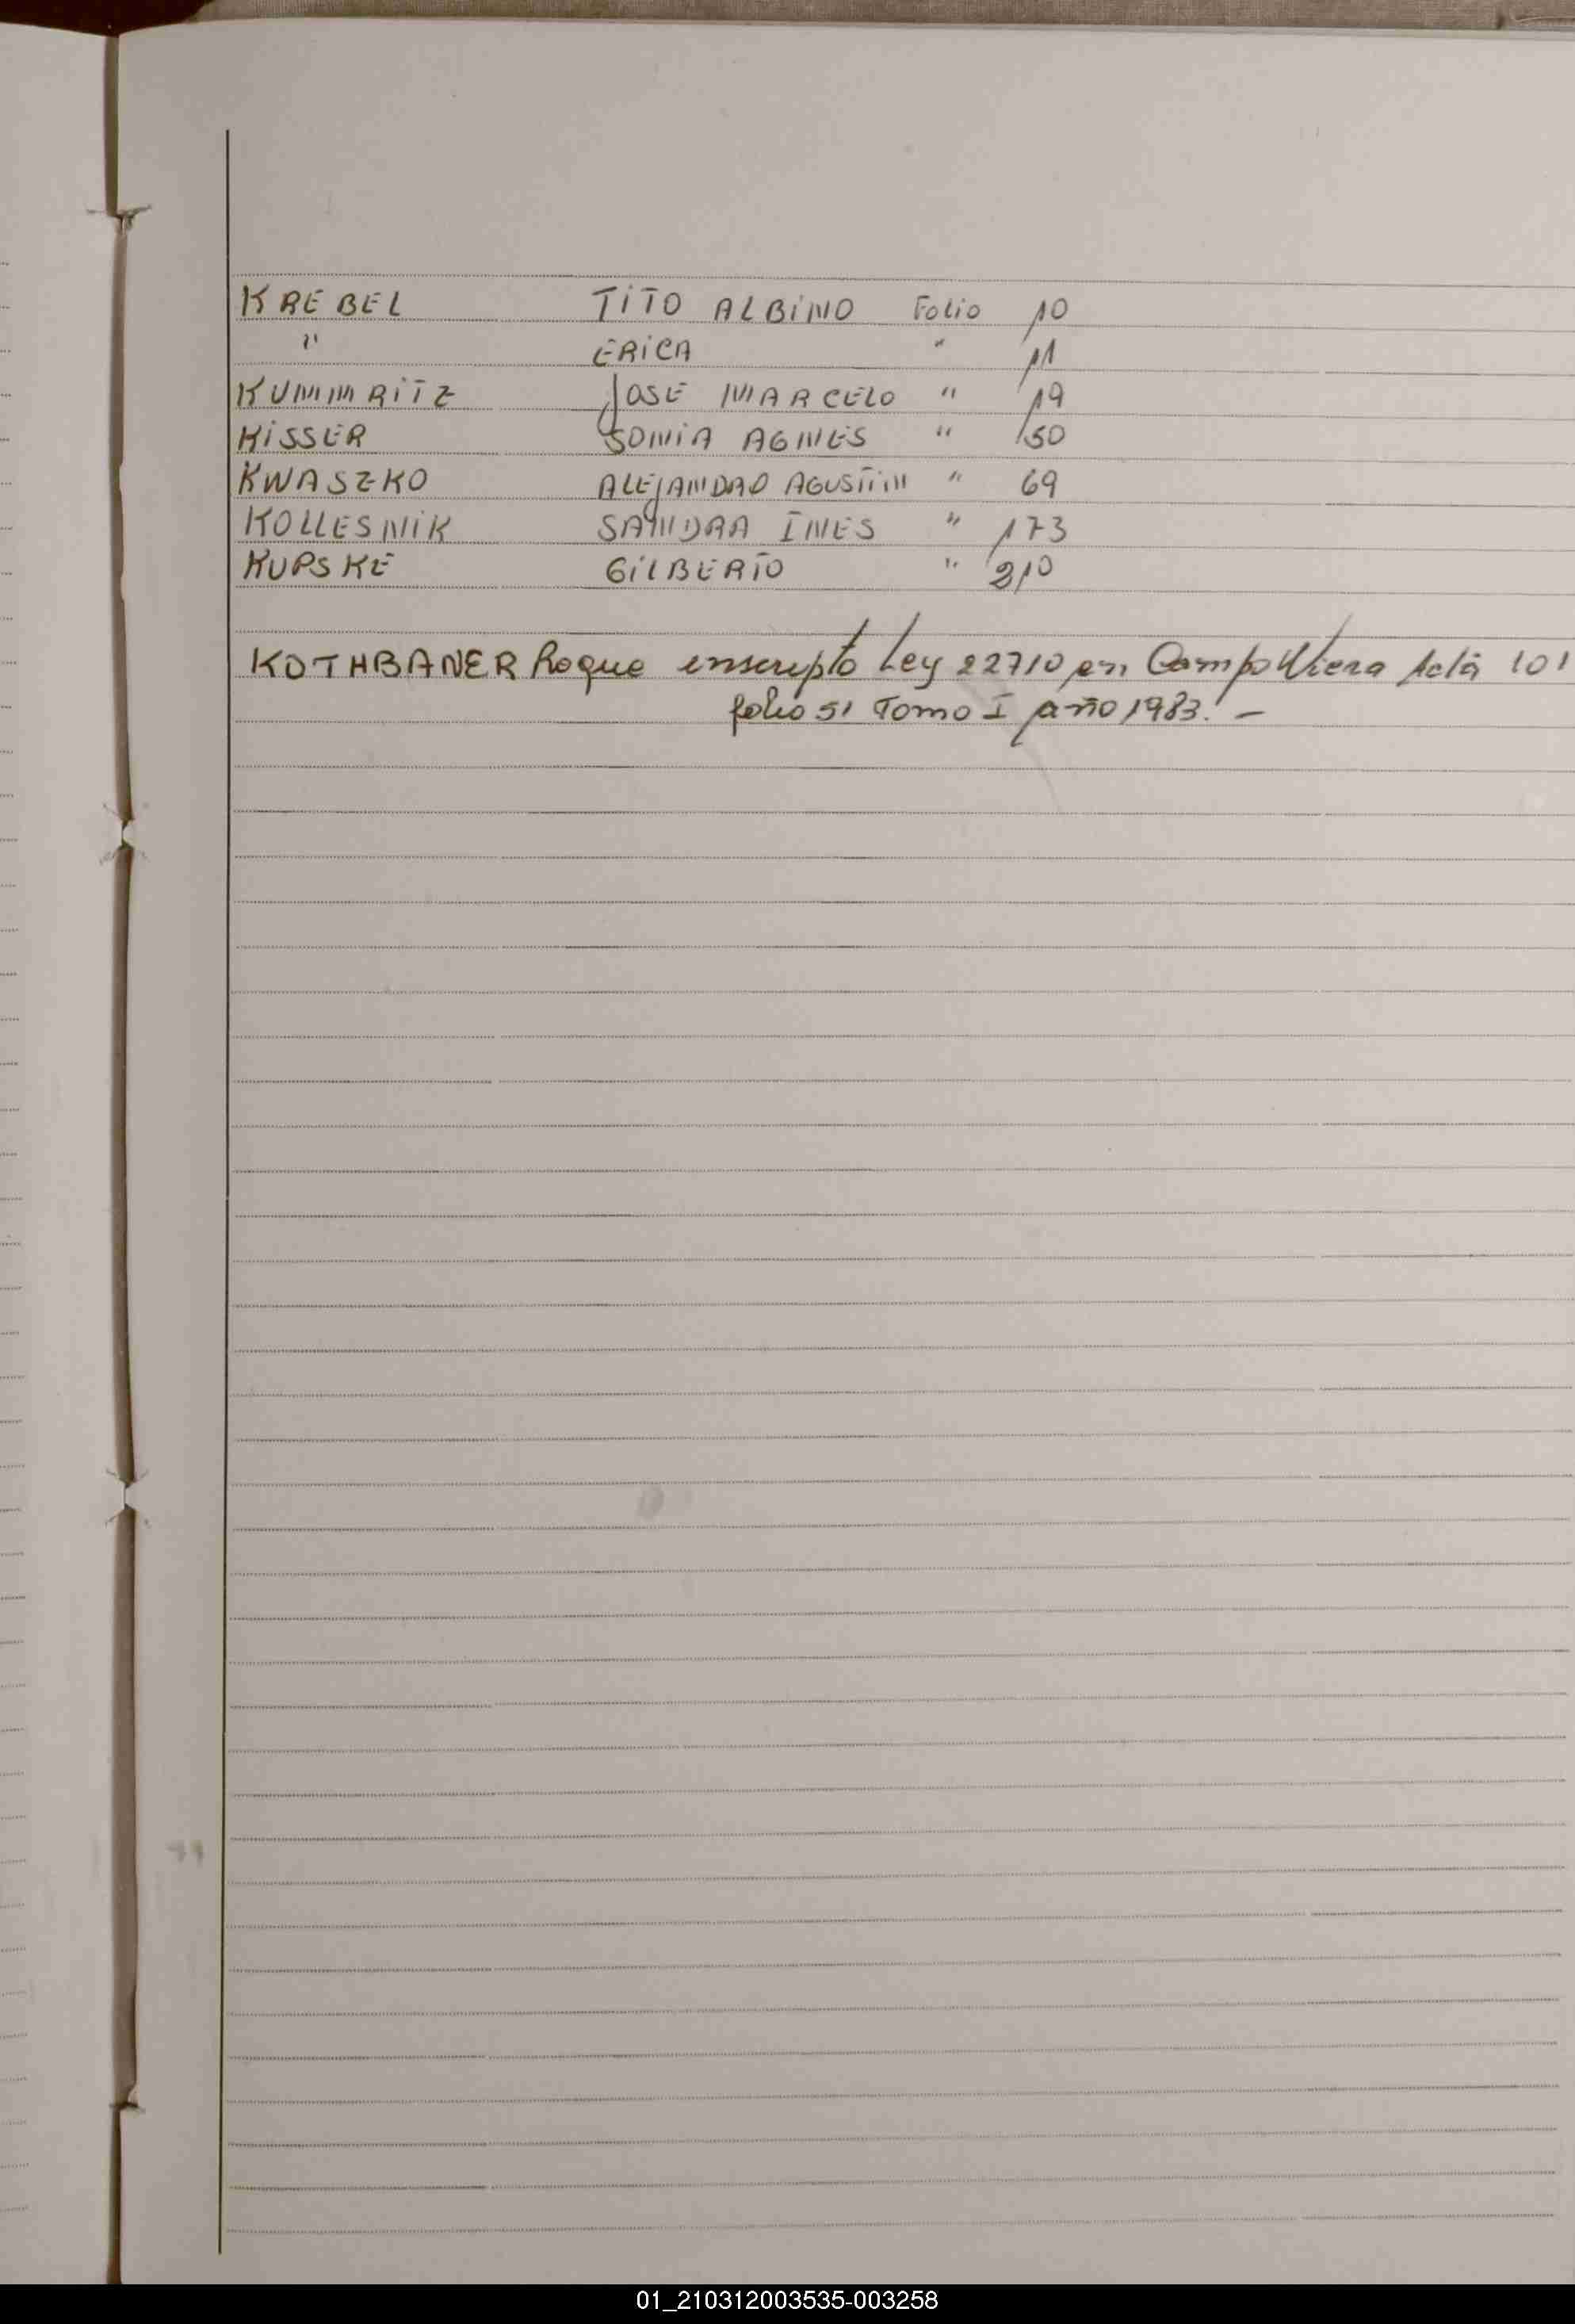 KREBEL TITO ALBINO Folio 10
" ERICA " 11
KUMMRITZ JOSE MARCELO " 19
KISSER SONIA AGNES " 50
KWASZKO ALEJANDRO AGUSTIN " 69
KOLLESNIK SANDRA INES " 173
KUPSKE GILBERTO " 210
KOTHBANER Roque inscripto Ley 22710 en Campo Viera Acta 101
folio 51 Tomo I año 1983. -
01_210312003535-003258